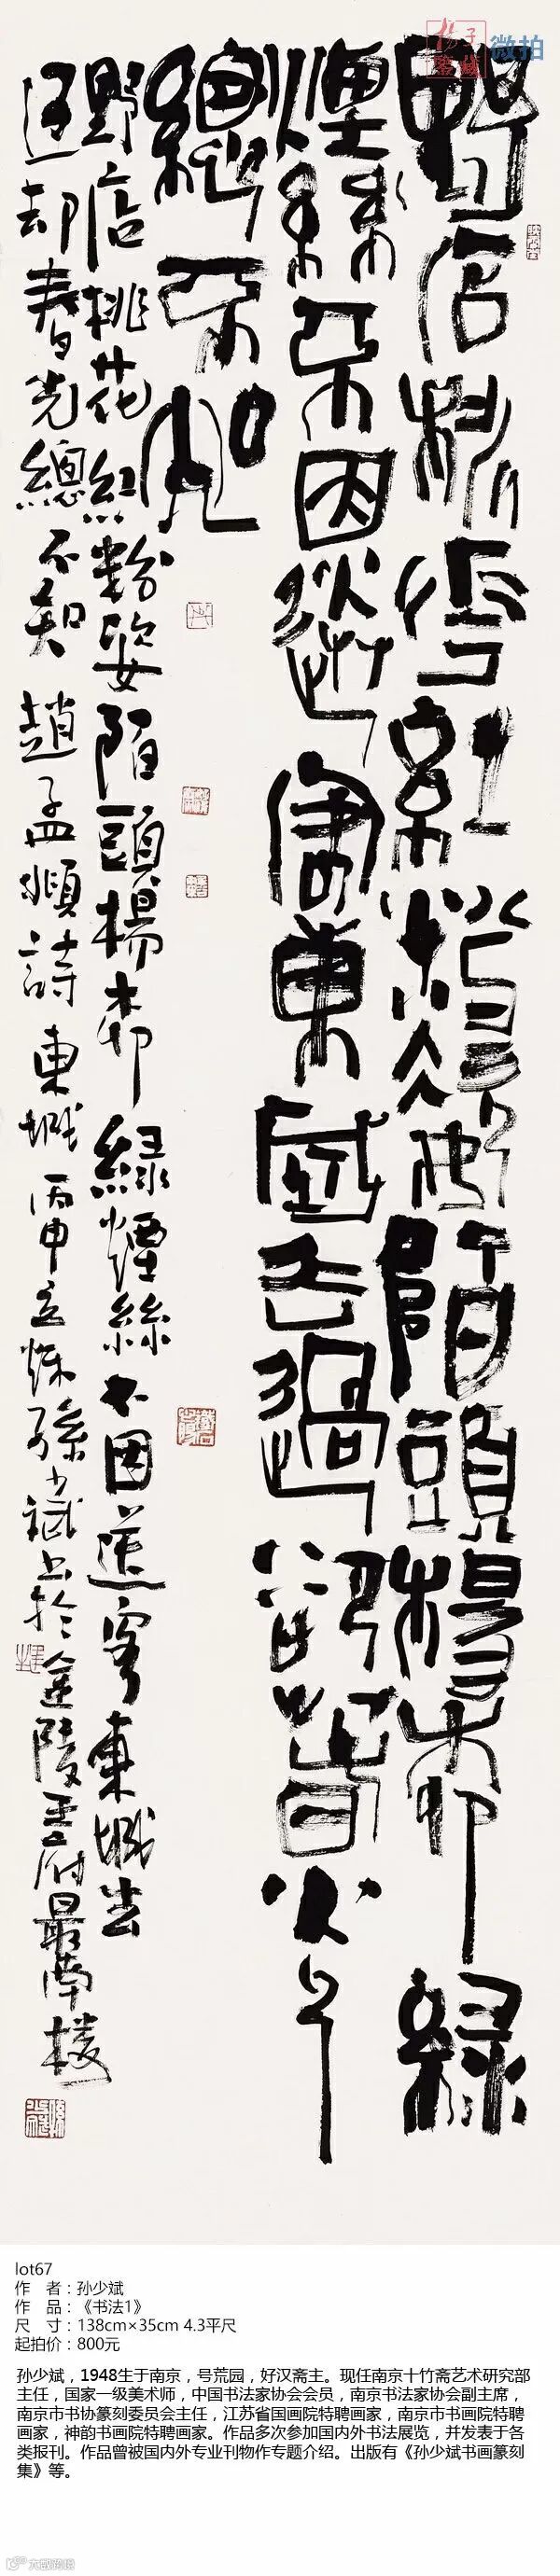 扬子鉴藏 微拍
野店桃花紅粉姿陌頭楊柳綠
煙絲不因送客東城去過卻春光
總不知
野店桃花紅粉姿陌頭楊柳綠煙絲不因送客東城去
過却春光總不知 趙孟頫詩東城 丙申秋孫少斌书於金陵王府最南楼
lot67
作 者：孙少斌
作 品：《书法1》
尺 寸：138cm×35cm 4.3平尺
起拍价：800元
孙少斌，1948生于南京，号荒园，好汉斋主。现任南京十竹斋艺术研究部
主任，国家一级美术师，中国书法家协会会员，南京书法家协会副主席，
南京市书协篆刻委员会主任，江苏省国画院特聘画家，南京市书画院特聘
画家，神韵书画院特聘画家。作品多次参加国内外书法展览，并发表于各
类报刊。作品曾被国内外专业刊物作专题介绍。出版有《孙少斌书画篆刻
集》等。